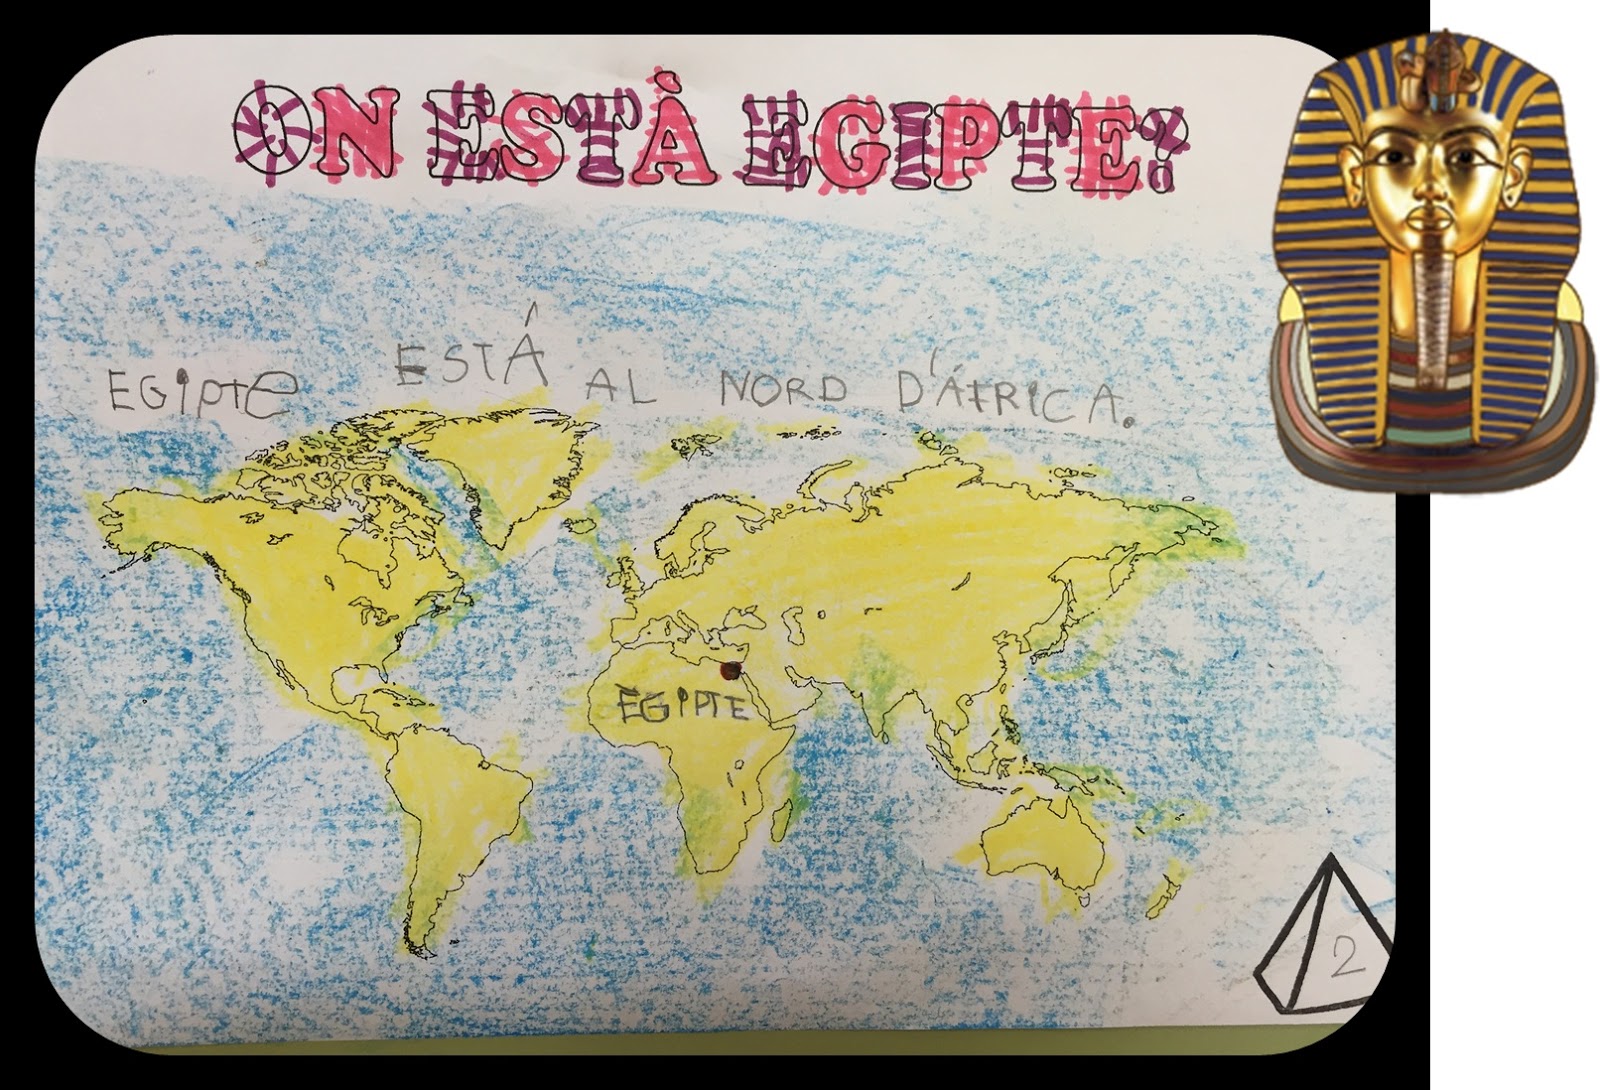 ON ESTÀ EGIPTE?
EGIPTe ESTÁ AL NORD D'ÁFRICA.
EGIPTE
2